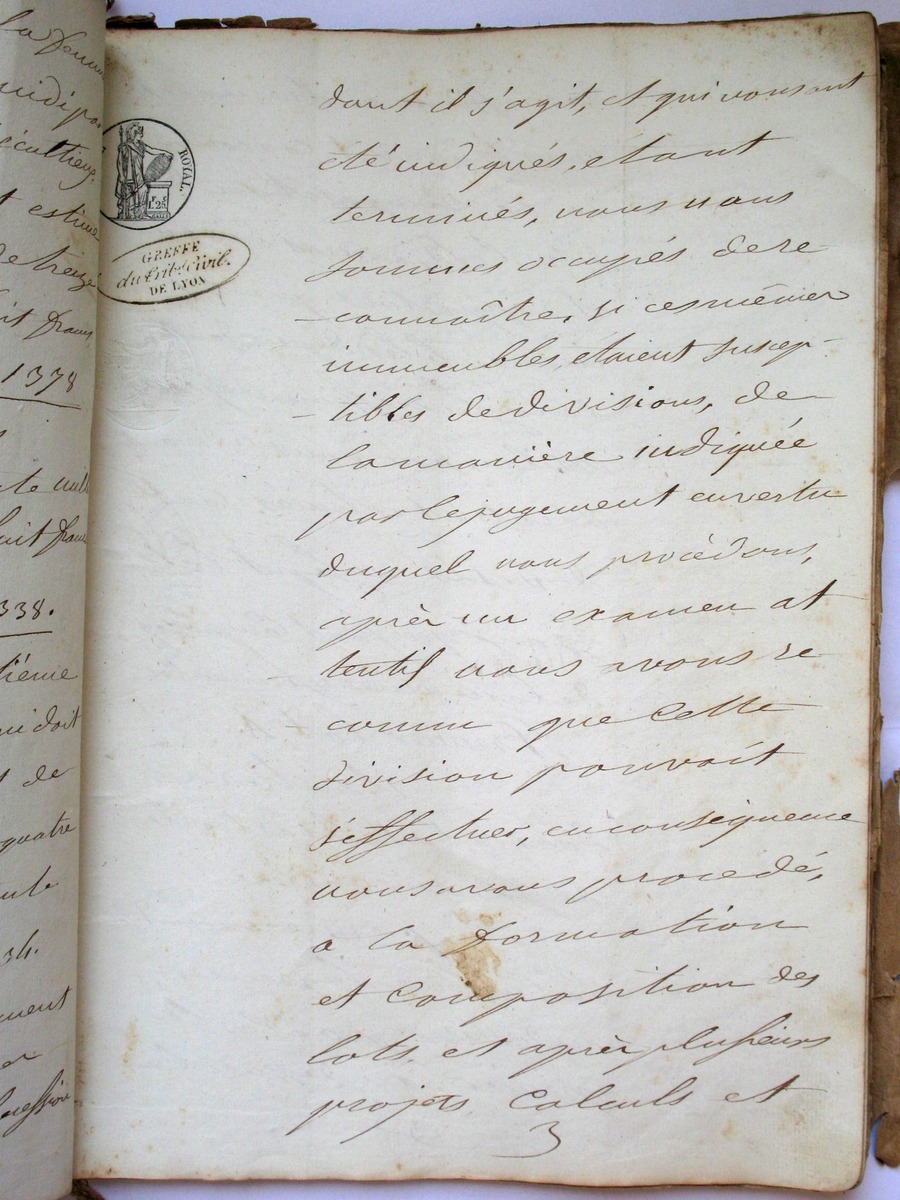 la
midi
estime
de treize
1378
cte mill
huit francs
338.
tième
qui doit
t de
quatre
34.
ment
ROYAL.
1.F 25.C
GREFFE
du Trib. Civil.
DE LYON
dont il s'agit, et qui nous ont
été indiqués, étant
terminés, nous nous
sommes occupés de re
connoître, si ces mêmes
immeubles étaient suscep-
tibles de divisions, de
la manière indiquée
par le jugement en vertu
duquel nous procédons,
après un examen at
tentif nous avons re
connu que cette
division pouvoit
s'effectuer, en conséquence
nous avons procédé,
a la formation
et composition des
lots, et après plusieurs
projets calculs et
3